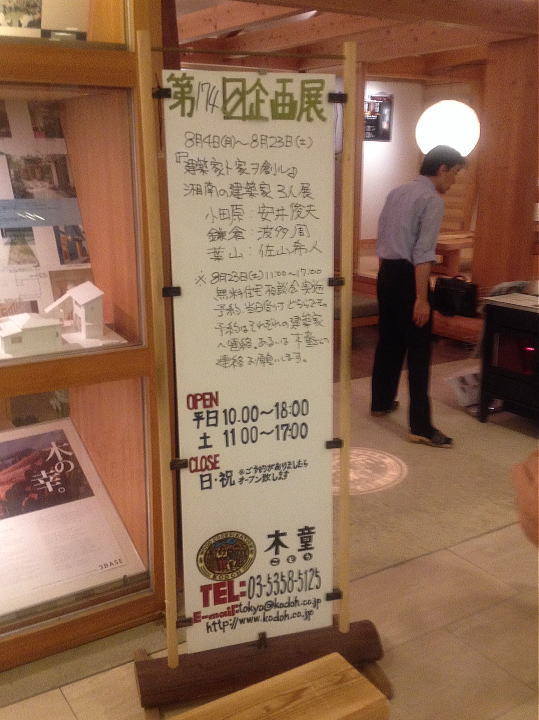 第174回企画展
8月4日(月)～8月23日(土)
『建築家ト家ヲ創ル』
湘南の建築家3人展
小田原:安井俊夫
鎌倉:波多周
葉山:佐山希人
※8月23日(土)11:00～17:00
無料住宅相談会実施
予約、当日受け どちらでも。
予約はそれぞれの建築家
へ連絡、あるいは 木童への
連絡お願いします。
OPEN
平日 10.00～18:00
土 11 00～17:00
CLOSE
日・祝 ※ご予約がありましたら
オープン致します
木童
こどう
KODOH
TEL:03-5358-5125
E-mail:tokyo@kodoh.co.jp
http://www.kodoh.co.jp
木の幸。
3BASE